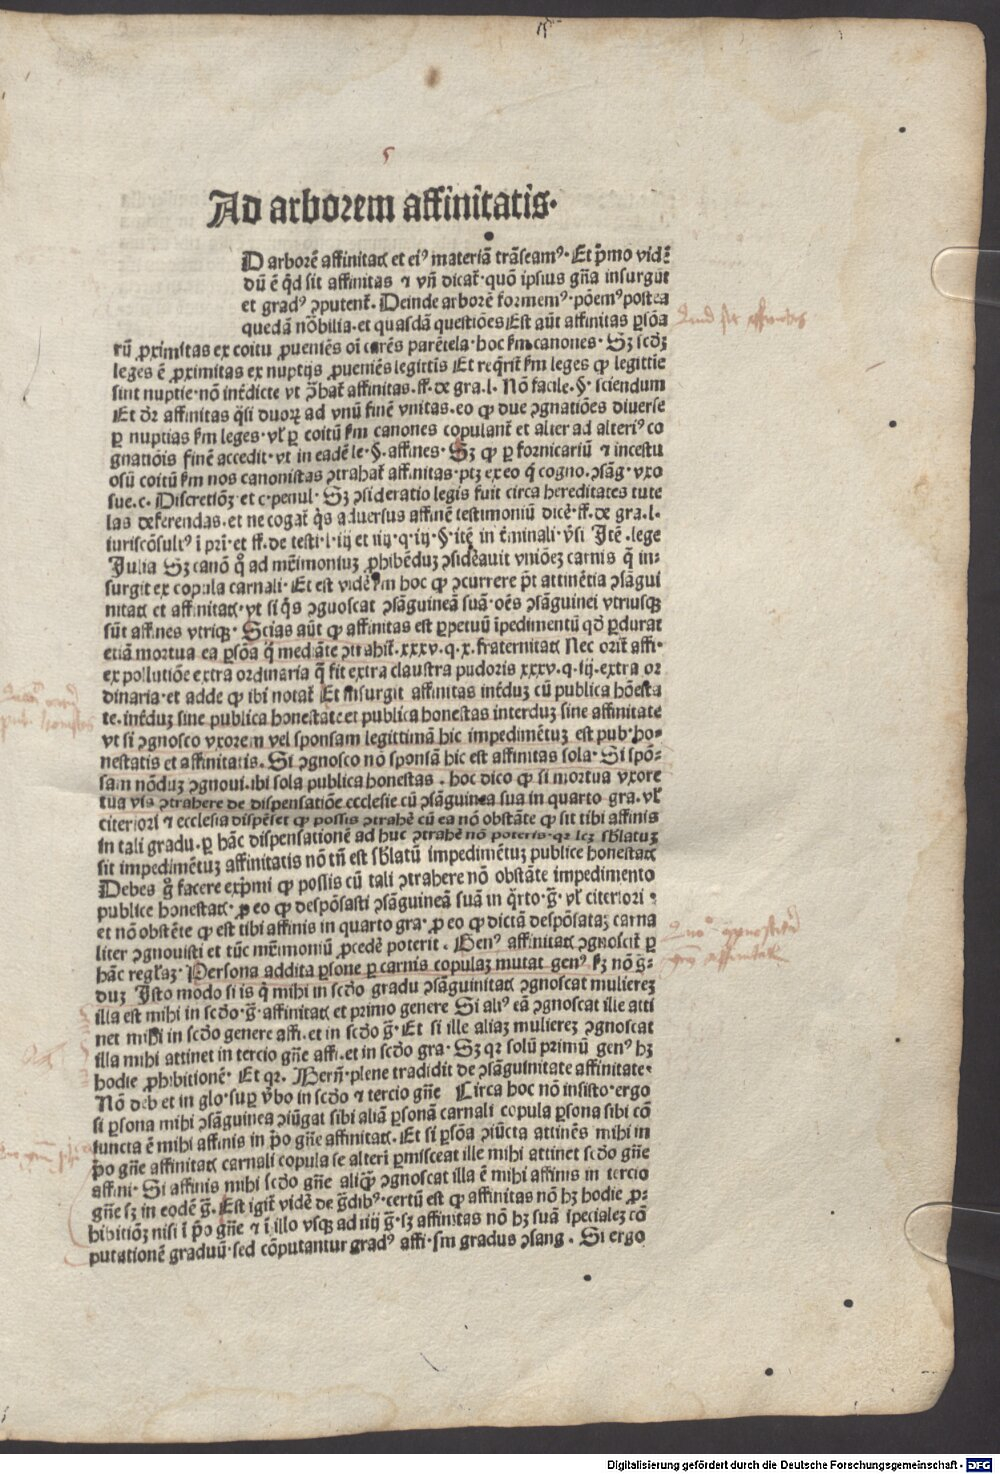 Ad arborem affinitatis.
D arborē affinitatꝭ et eiꝰ materiā trāseamꝰ. Et pͥmo vidē
dū ē qͥd sit affinitas ⁊ vñ dicat̄. quō ipsius gña insurgūt
et gradꝰ ꝯputent̄. Deinde arborē formemꝰ. pōemꝰ postea
quedā nōbilia. et quasdā questiōes Est aūt affinitas ꝑsōa
rū ꝓximitas ex coitu ꝓueniēs oī carēs parētela. hoc ẜm canones. Sꝫ scd̄ꝫ
leges ē ꝓximitas ex nuptijs ꝓueniēs legittīs Et reqͥrit̄ ẜm leges ꝙ legittie
sint nuptie. nō inťdicte vt ꝓ̄hat̄ affinitas. ff. de gra. l. Nō facile. §. sciendum
Et dr̄ affinitas qͣsi duoꝝ ad vnū finē vnitas. eo ꝙ due ꝯgnatiōes diuerse
ꝑ nuptias ẜm leges. vl̄ ꝑ coitū ẜm canones copulant̄ et alter ad alteriꝰ co
gnatiōis finē accedit. vt in eadē le. §. affines. Sꝫ ꝙ ꝑ fornicariū ⁊ incestu
osū coitū ẜm nos canonistas ꝯtrahat̄ affinitas. ptꝫ ex eo qͥ cogno. ꝯsāg. vxo
sue. c. Discretiōꝫ et c. penul. Sꝫ ꝯsideratio legis fuit circa hereditates tute
las deferendas. et ne cogat̄ qͥs aduersus affinē testimoniū dicē. ff. de gra. l.
iuriscōsultꝰ ī pri. et ff. de testi. l. iij et iiij. q. iij. §. itē in ťminali. v̓si Itē. lege
Julia Sꝫ canō qͦ ad mr̄imoniuꝫ ꝓhibēduꝫ ꝯsiděauit vniōeꝫ carnis q̄ in-
surgit ex copula carnali. Et est vidē im hoc ꝙ ꝯcurrere pōt attinētia ꝯsāgui
nitatꝭ et affinitatꝭ. vt si qͥs ꝯgnoscat ꝯsāguineā suā. oēs ꝯsāguinei vtriusqꝫ
sūt affines vtriqꝫ. Scias aūt ꝙ affinitas est ꝑpetuū īpedimentū qd̄ ꝑdurat
etiā mortua ea ꝑsōa q̄ mediāte ꝯtrahit̄. xxxv. q. x. fraternitatꝭ Nec orit̄ affi.
ex pollutiōe extra ordinaria q̄ fit extra claustra pudoris xxxv. q. iij. extra or
dinaria. et adde ꝙ ibi notat̄ Et insurgit affinitas inťduꝫ cū publica hōesta
te. inťduꝫ sine publica honestate et publica honestas interduꝫ sine affinitate
vt si ꝯgnosco vxorem vel sponsam legittimā hic impedimētuꝫ est pub. ho-
nestatis et affinitatis. Si ꝯgnosco nō sponsā hic est affinitas sola. Si spō-
sam nōduꝫ ꝯgnoui. ibi sola publica honestas. hoc dico ꝙ si mortua vxore
tua vis ꝯtrahere de dispensatiōe ecclesie cū ꝯsāguinea sua in quarto gra. vl̄
citeriori ⁊ ecclesia dispēset ꝙ possis ꝯtrahē cū ea nō obstāte ꝙ sit tibi affinis
in tali gradu. ꝑ hāc dispensationē ad huc ꝯtrahē nō poteris. qr lꝫ sb̄latuꝫ
sit impedimētuꝫ affinitatis nō tn̄ est sb̄latū impedimētuꝫ publice honestatꝭ
Debes gͦ facere expͥmi ꝙ possis cū tali ꝯtrahere nō obstāte impedimento
publice honestatꝭ. ꝓ eo ꝙ despōsasti ꝯsāguineā suā in qͣrto. g̅. vl̄ citeriori ⁊
et nō obstēte ꝙ est tibi affinis in quarto gra. ꝓ eo ꝙ dictā despōsataꝫ carna
liter ꝯgnouisti et tūc mr̄imoniū ꝓcedē poterit. Genꝰ affinitatꝭ ꝯgnoscit̄ ꝑ
hāc regl̄aꝫ. Persona addita ꝑsone ꝑ carnis copulaꝫ mutat genꝰ sꝫ nō g̅-
duꝫ Isto modo si is qͥ mihi in scd̄o gradu ꝯsāguinitatꝭ ꝯgnoscat muliereꝫ
illa est mihi in scd̄o. g̅. affinitatꝭ et primo genere Si aliꝰ eā ꝯgnoscat ille atti
net mihi in scd̄o genere affi. et in scd̄o g̅. Et si ille aliaꝫ muliereꝫ ꝯgnoscat
illa mihi attinet in tercio gn̄e affi. et in scd̄o gra. Sꝫ qr solū primū genꝰ hꝫ
hodie ꝓhibitionē. Et qr. Bern̄. plene tradidit de ꝯsāguinitate affinitate.
Nō deb et in glo. suꝑ v̓bo in scd̄o ⁊ tercio gn̄e Circa hoc nō insisto. ergo
si ꝑsona mihi ꝯsāguinea ꝯiūgat sibi aliā ꝑsonā carnali copula ꝑsona sibi cō
iuncta ē mihi affinis in pͥo gn̄e affinitatꝭ. Et si ꝑsōa ꝯiūcta attinēs mihi in
pͥo gn̄e affinitatꝭ carnali copula se alteri ꝑmisceat ille mihi attinet scd̄o gn̄e
affini. Si affinis mihi scd̄o gn̄e aliqͣꝫ ꝯgnoscat illa ē mihi affinis in tercio
gn̄e sꝫ in eodē g̅. Est igit̄ vidē de g̅dibꝰ. certū est ꝙ affinitas nō hꝫ hodie ꝓ-
hibitiōꝫ nisi ī pͥo gn̄e ⁊ ī illo vsqꝫ ad iiij g̅. sꝫ affinitas nō hꝫ suā īpecialeꝫ cō
putationē graduū. sed cōputantur gradꝰ affi. ẜm gradus ꝯsang. Si ergo
Digitalisierung gefördert durch die Deutsche Forschungsgemeinschaft - DFG